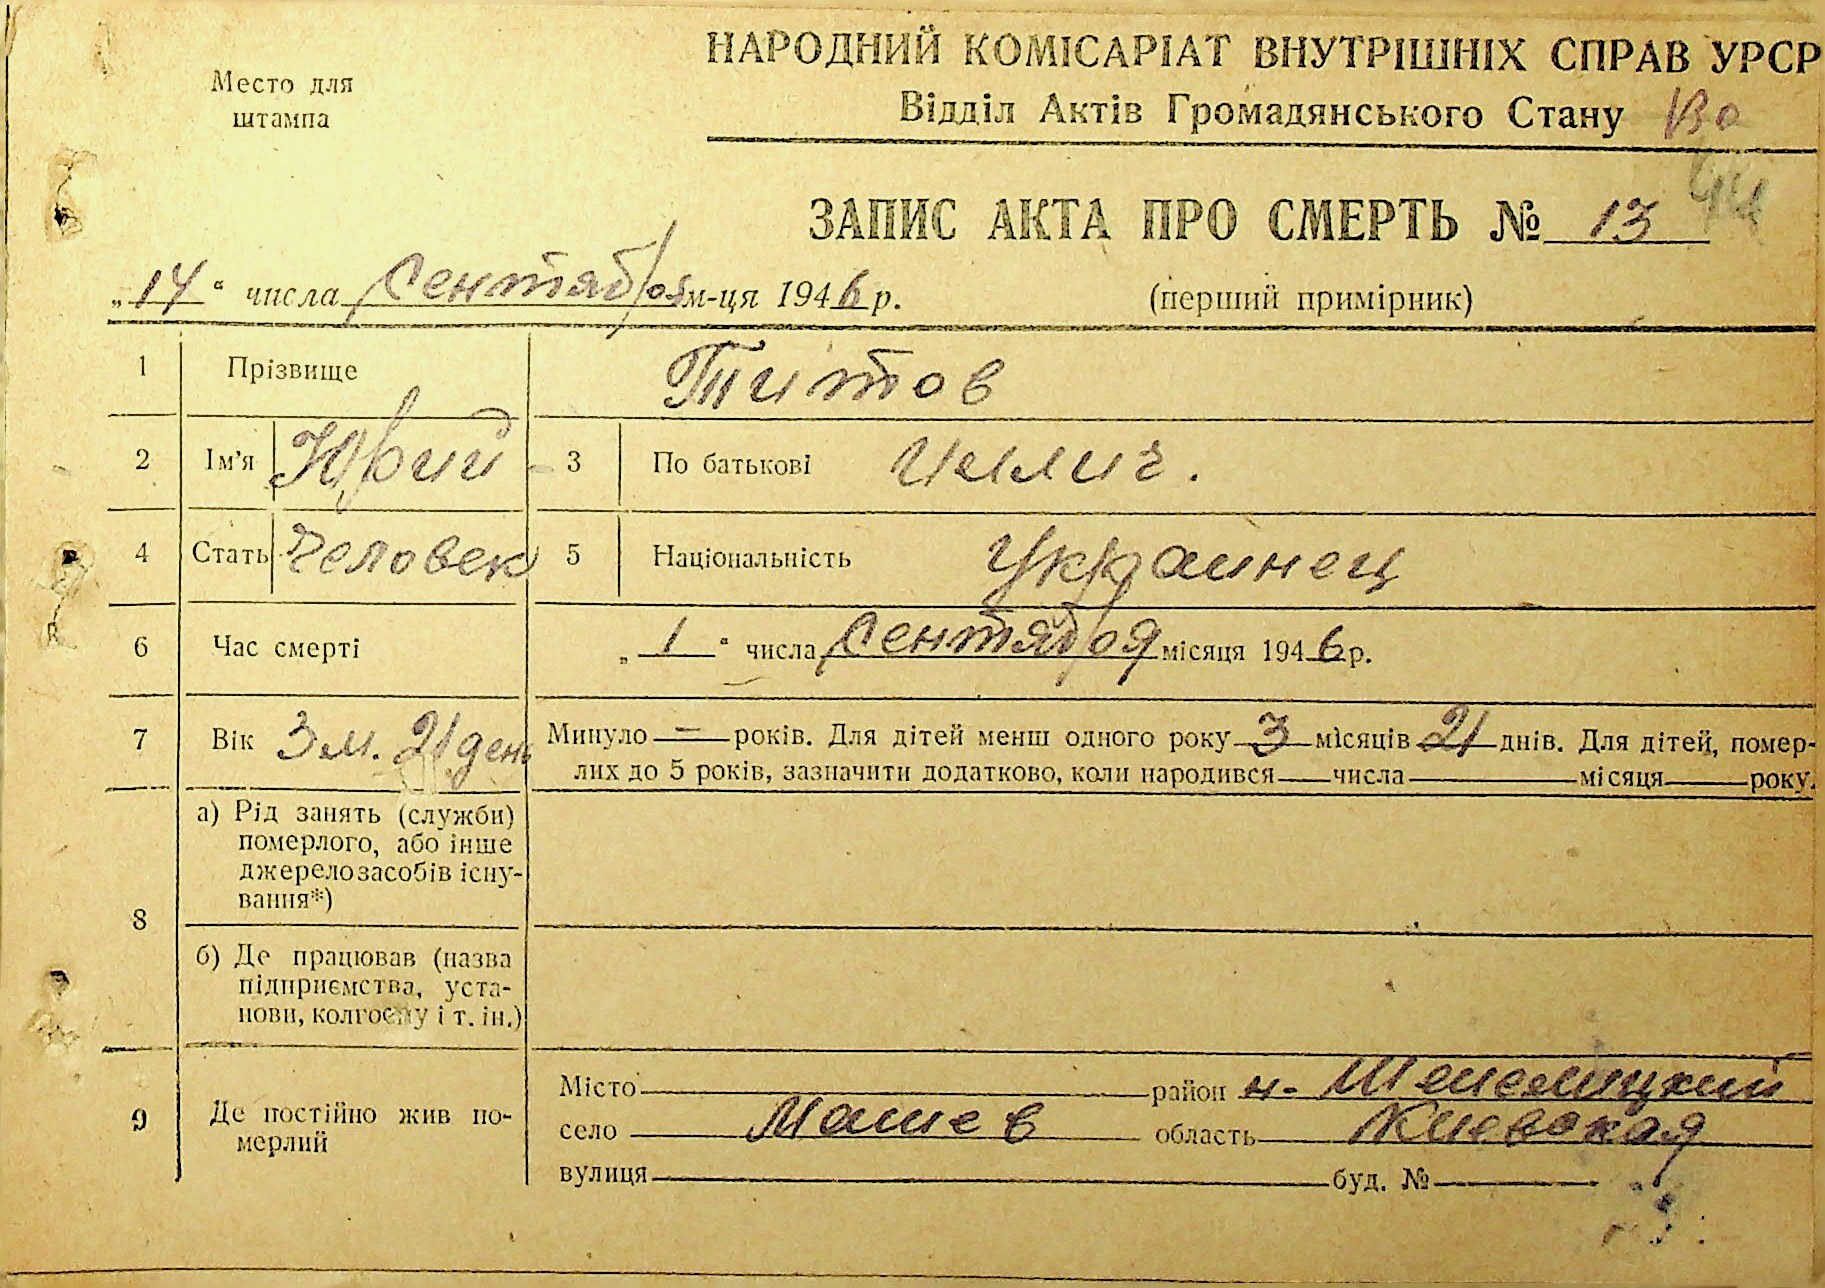 НАРОДНИЙ КОМІСАРІАТ ВНУТРІШНІХ СПРАВ УРСР
Место для
штампа
Відділ Актів Громадянського Стану
ЗАПИС АКТА ПРО СМЕРТЬ № 13
„14“ числа сентября м-ця 1946 р.
(перший примірник)
1 Прізвище Титов
2 Ім'я Юрий 3 По батькові
4 Стать Человек 5 Національність Украинец
6 Час смерті „1“ числа сентября місяця 1946 р.
7 Вік 3 м. 21 день Минуло — років. Для дітей менш одного року 3 місяців 21 днів. Для дітей, помер-
лих до 5 років, зазначити додатково, коли народився числа місяця року.
8 а) Рід занять (служби)
померлого, або інше
джерело засобів існу-
вання*)
б) Де працював (назва
підприємства, уста-
нови, колгоспу і т. ін.)
9 Де постійно жив по-
мерлий
Місто район н-Шепелицкий
село Машев область Киевская
вулиця буд. №